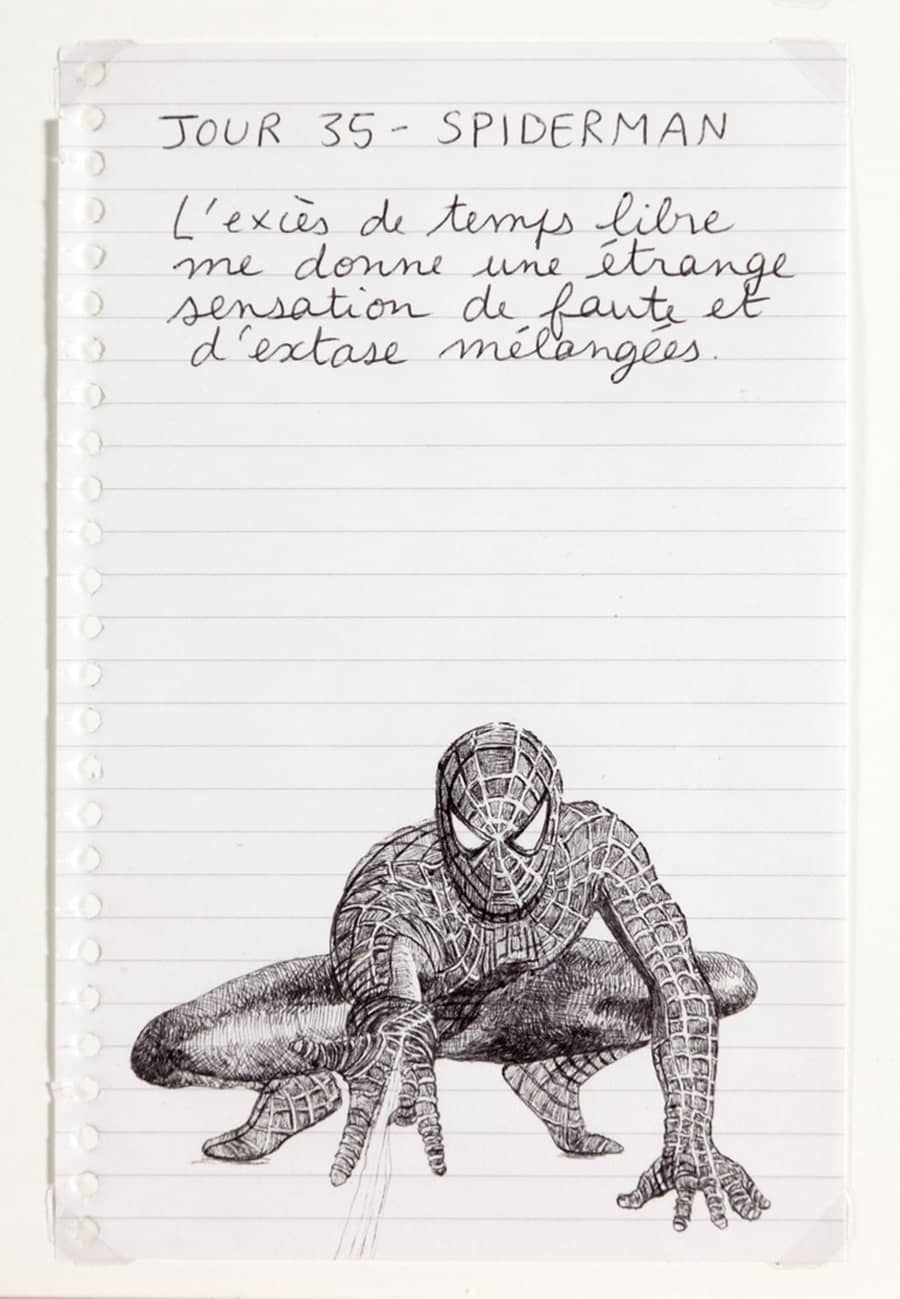 JOUR 35 - SPIDERMAN
L'excès de temps libre
me donne une étrange
sensation de faute et
d'extase mélangées.